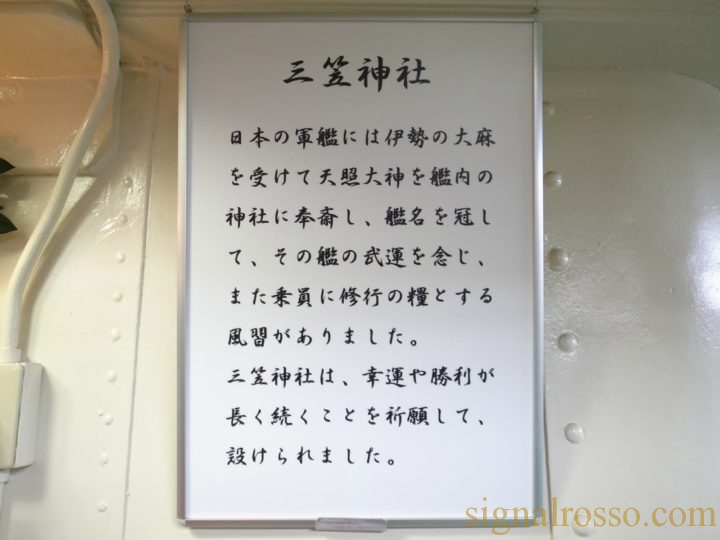 三笠神社
日本の軍艦には伊勢の大麻
を受けて天照大神を艦内の
神社に奉斎し、艦名を冠し
て、その艦の武運を念じ、
また乗員に修行の糧とする
風習がありました。
三笠神社は、幸運や勝利が
長く続くことを祈願して、
設けられました。
signalrosso.com